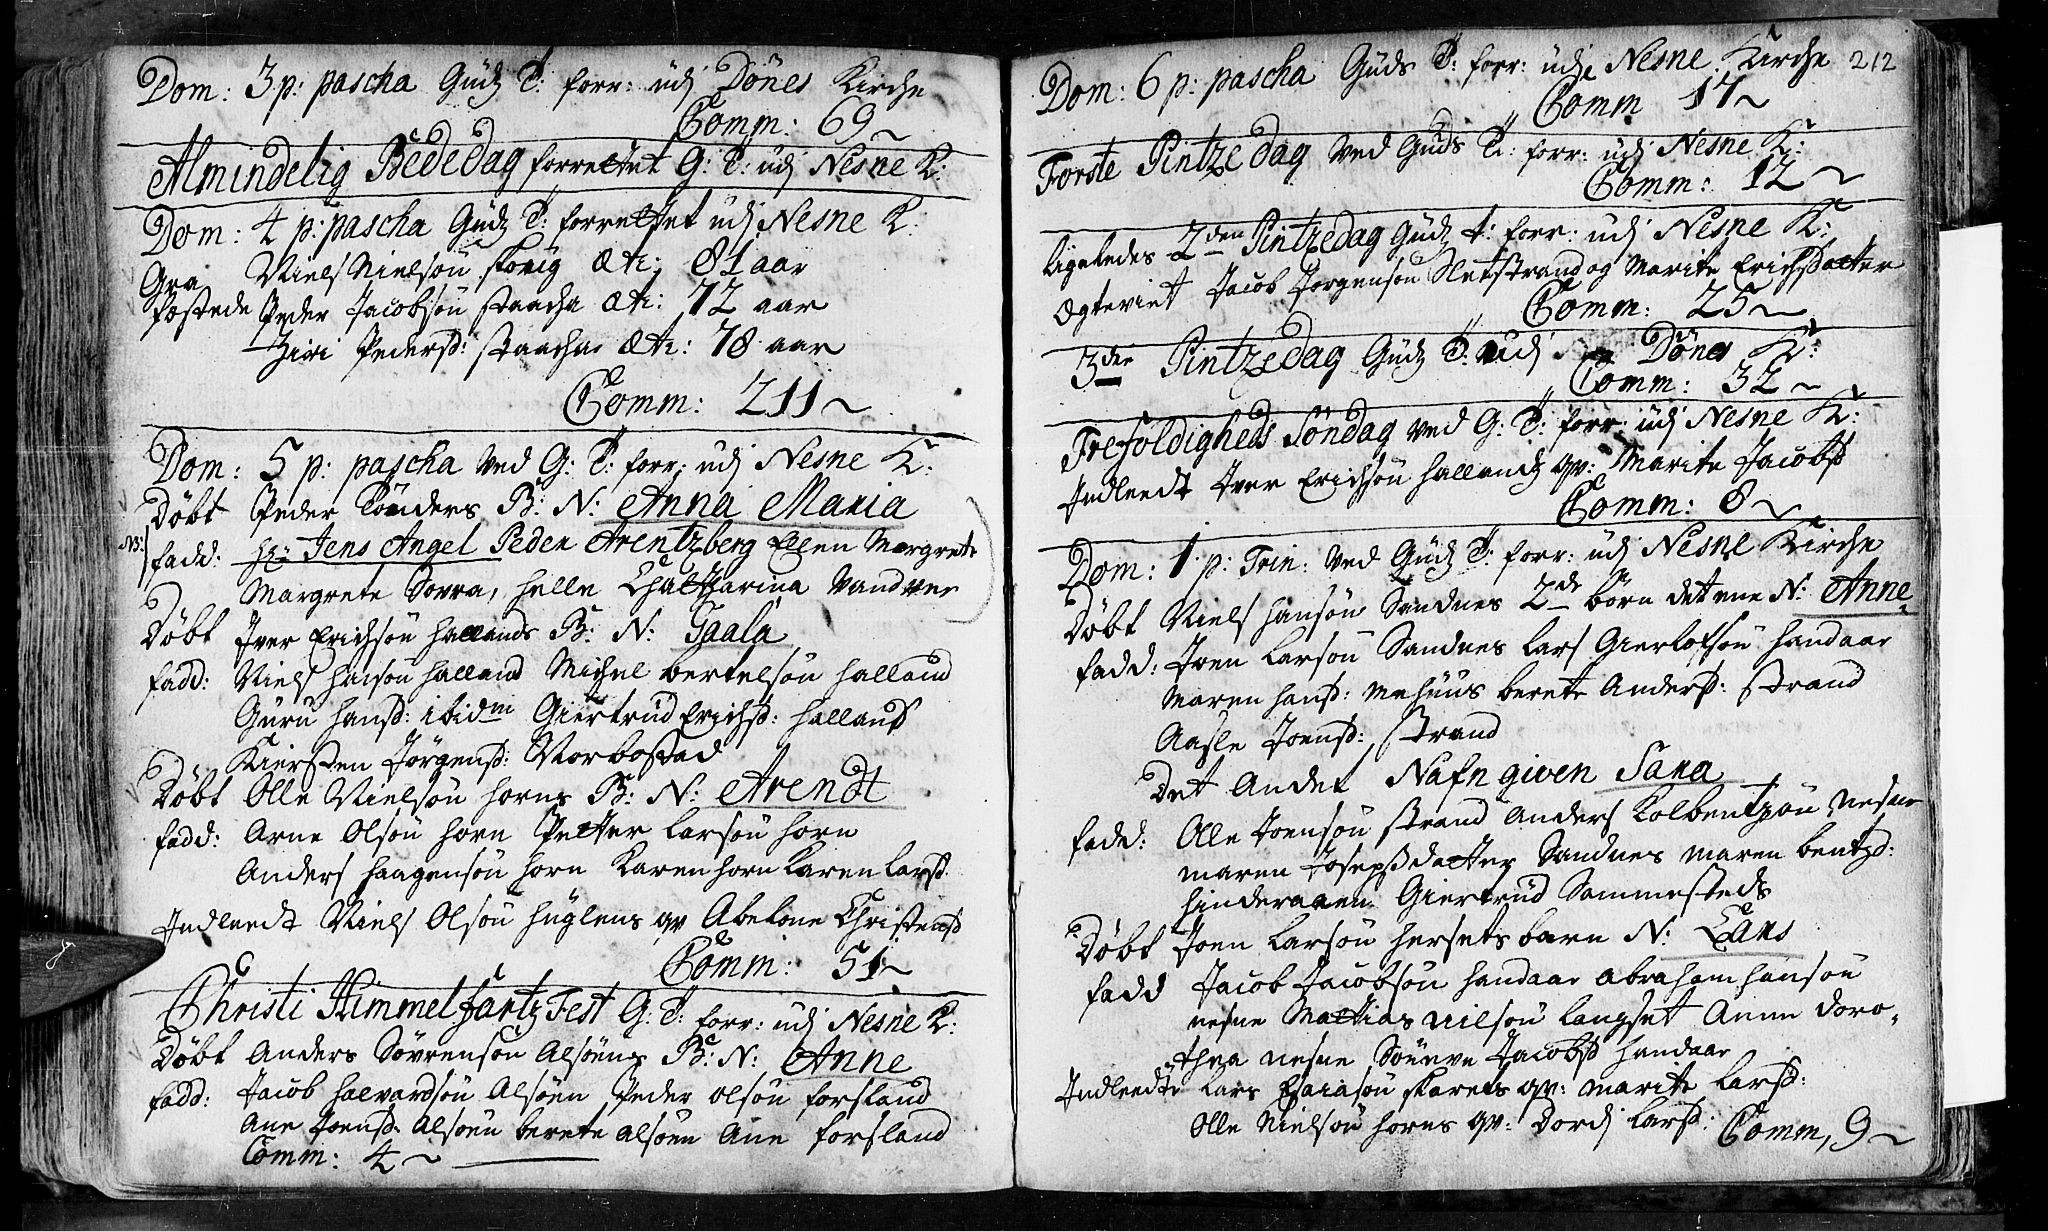 Dom: 3 p: pascha Gudz T: forr: udj Dönes Kirche
Comm: 69
Almindelig Bededag forrettet G: T: udj Nesne K:
Dom: 4 p: pascha Gudz T: forrettet udj Nesne K:
Gra Niels Nielsøn skovig Æt: 81 aar
Pøstede Peder Jacobsøn staacha Æt: 72 aar
Ziri Pedersd: staacha Æt: 78 aar
Comm: 211
Dom: 5 p: pascha ved G: T: forr: udj Nesne K:
Døbt Peder Tønders B: N: Anna Maria
NB: fadd: Hr: Jens Angel Peder Arentzberg Ellen Margrete
Margrete Sorra, helle Chatharina Vandver
Døbt Iver Erichsøn hallands B: N: Gaala
fadd: Niels hansøn halland Michel bertelsøn halland
Guru hansd: ibidm Giertrud Erichsd: halland
Kiersten Jørgensd: Norbostad
Døbt Olle Nielsøn horns B: N: Arendt
fadd: Arne Olsøn horn Petter Larsøn horn
Anders haagensøn horn Karen horn Karen Larsd.
Indleedt Niels Olsøn huglens qv Abelone Christensd
Comm: 51
Christi Himmelfartz Fest G: T: forr: udj Nesne K:
Døbt Anders Sövrensøn Alsøens B: N: Anne
fadd: Jacob halvardsøn Alsøen Peder olsøn forsland
Ane Joensd. Alsøen berete alsøen Ane forsland
Comm: 4
212
Dom: 6 p: pascha Guds T: forr: udj Nesne Kirche
Comm 17
Første Pintzedag ved Guds T: forr: udj Nesne K:
Comm: 12
ligeledes 2den Pintzedag Gudz t: forr: udj Nesne K:
Ægteviet Jacob Jørgensøn Sletstrand og Marite Erichsdatter
Comm: 25
3den Pintzedag Gudz T: udj Dönes K:
Comm: 32
Trefoldigheds Söndag ved G: T: forr: udj Nesne K:
Indleedt Iver Erichsøn hallandz qv: Marite Jacobsd
Comm: 8
Dom: 1 p: Trin: ved Gudz T: forr: udj Nesne Kirche
Døbt Niels hansøn Sandnes 2de børn det ene N: Anne
fadd: Joen Larsøn Sandnes Lars Gierlofsøn handaar
Maren hansd: Mehuus berete Andersd: strand
Aasle Joensd: strand
Det Andet Nafn given Sara
fadd: Olle Joensøn strand Anders Kolbentzøn Nesne
maren Josephdatter Sandnes maren bentzd:
hinderaaen Giertrud Sommesteds
Døbt Joen Larsøn hersets barn N: Lars
fadd Jacob Jacobsøn handaar abraham hansøn
nesne Mattias nilsøn langset Anne doro-
thea nesne Sønneve Jacobsd handaar
Indleedte Lars Esaiasøn skarets qv: marite larsd:
Olle Nielsøn horns qv: Dordj larsd: Comm, 9